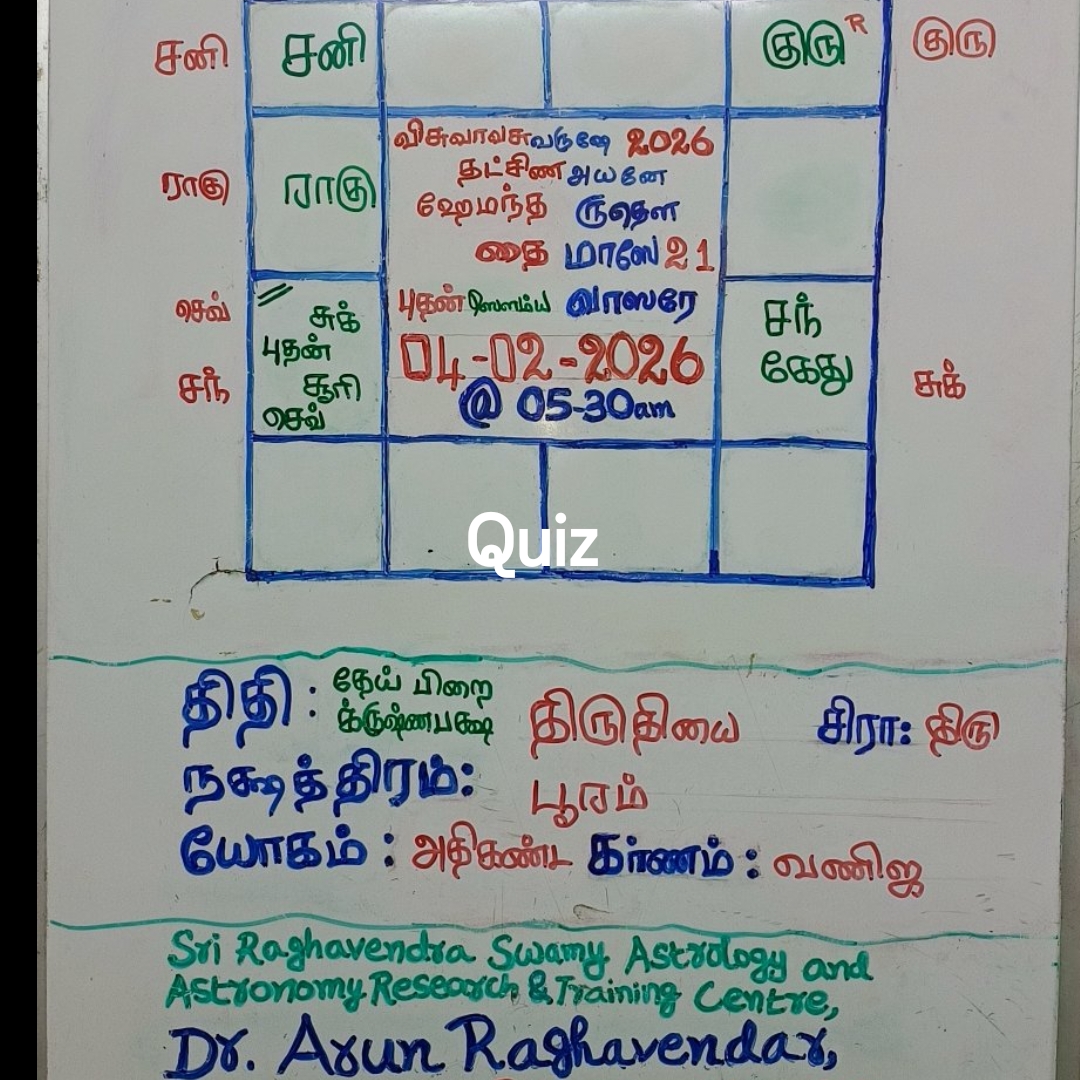 சனி சனி குரு R குரு
விசுவாவசுவருஷே 2026
தட்சிண அயனே
ராகு ராகு
ஹேமந்த ருதௌ
தை மாஸே 21
செவ் சுக் புதன் ஸௌம்ய வாஸரே சந்
புதன் 04-02-2026 கேது
சந் சூரி @ 05-30am சுக்
செவ்
Quiz
திதி : தேய் பிறை
க்ருஷ்ணபக்ஷ திருதியை சிரா: திரு
நக்ஷத்திரம்: பூரம்
யோகம் : அதிகண்ட கர்ணம் : வணிஜ
Sri Raghavendra Swamy Astrology and
Astronomy Research & Training Centre,
Dr. Arun Raghavendar,